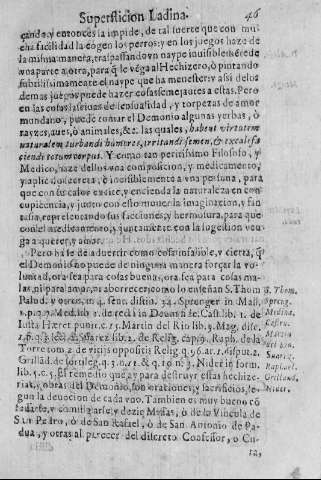 Supersticion Ladina. 46
çando, y entonces la impide, de tal suerte que con mu-
cha facilidad la cogen los perros: y en los juegos haze de
la misma manera, traspassando vn naype inuisiblemẽte de
vna parte a otra, para q̃ le vẽga al Hechizero, ò pintando
subtilissimamente el naype que ha menester: y assi de los
demas juegos puede hazer cosas semejantes a estas. Pero
en las cosas lasciuas de sensualidad, y torpezas de amor
mundano, puede tomar el Demonio algunas yerbas, ò
rayzes, aues, ò animales, &c. las quales, habent virtutem
naturalem turbandi humores, irritandi semen, & excalefa
ciendi totum corpus. Y como tan peritissimo Filosofo, y
Medico, haze dellos vna composicion, y medicamento,
y aplicandole
ò inuisiblemente a vna persona, para
que con su calor excite, y encienda la naturaleza en con-
cupiencia, y junto con esto mueue la imaginacion, y fan-
tasia, representando sus facciones, y hermosura, para que
con el medicamento, y juntamente con la sugestion ven-
ga a querer, y amar.
Pero hase de aduertir como cosa infalible, y cierta, q̃
el Demonio no puede de ninguna manera forçar la vo-
luntad, ora sea para cosas buenas, ora sea para cosas ma-
las, ni para amor, ni aborrecer: como lo enseñan S. Thom
Palud. y otros, in 4. sent. distin. 34. Sprenger in Mall.
1. p. q. 7. Med. lib. 2. de recta in Deum fide. Cast. lib. 1. de
Iusta Hæret punit. c. 15. Martin del Rio lib. 3. Mag. disc.
Suarez lib. 2. de Relig. cap. 9. Raph. de la
Torre tom. 2. de vitijs oppositis Relig. q. 96. ar. 1. disput. 2.
Grilland. de sortileg. q. 3. n. 11. & q. 10 n. 3. Nider in form.
lib. 5. c. 5. El remedio que ay para destruyr estas hechize-
rias, y obras del Demonio, son oraciones, y sacrificios, se-
gun la deuocion de cada vno. Tambien es muy bueno cõ
fessarse, y comulgarse, y dezir Missas, ò de la Vincula de
San Pedro, ò de San Rafael, ò de San Antonio de Pa-
dua, y otras al parecer del discreto Confessor, o Cu-
ra,
S. Thom.
Spreng.
Medina.
Castro.
Martin
del Rio.
Suarez.
Raphael.
Grilland.
Nider.